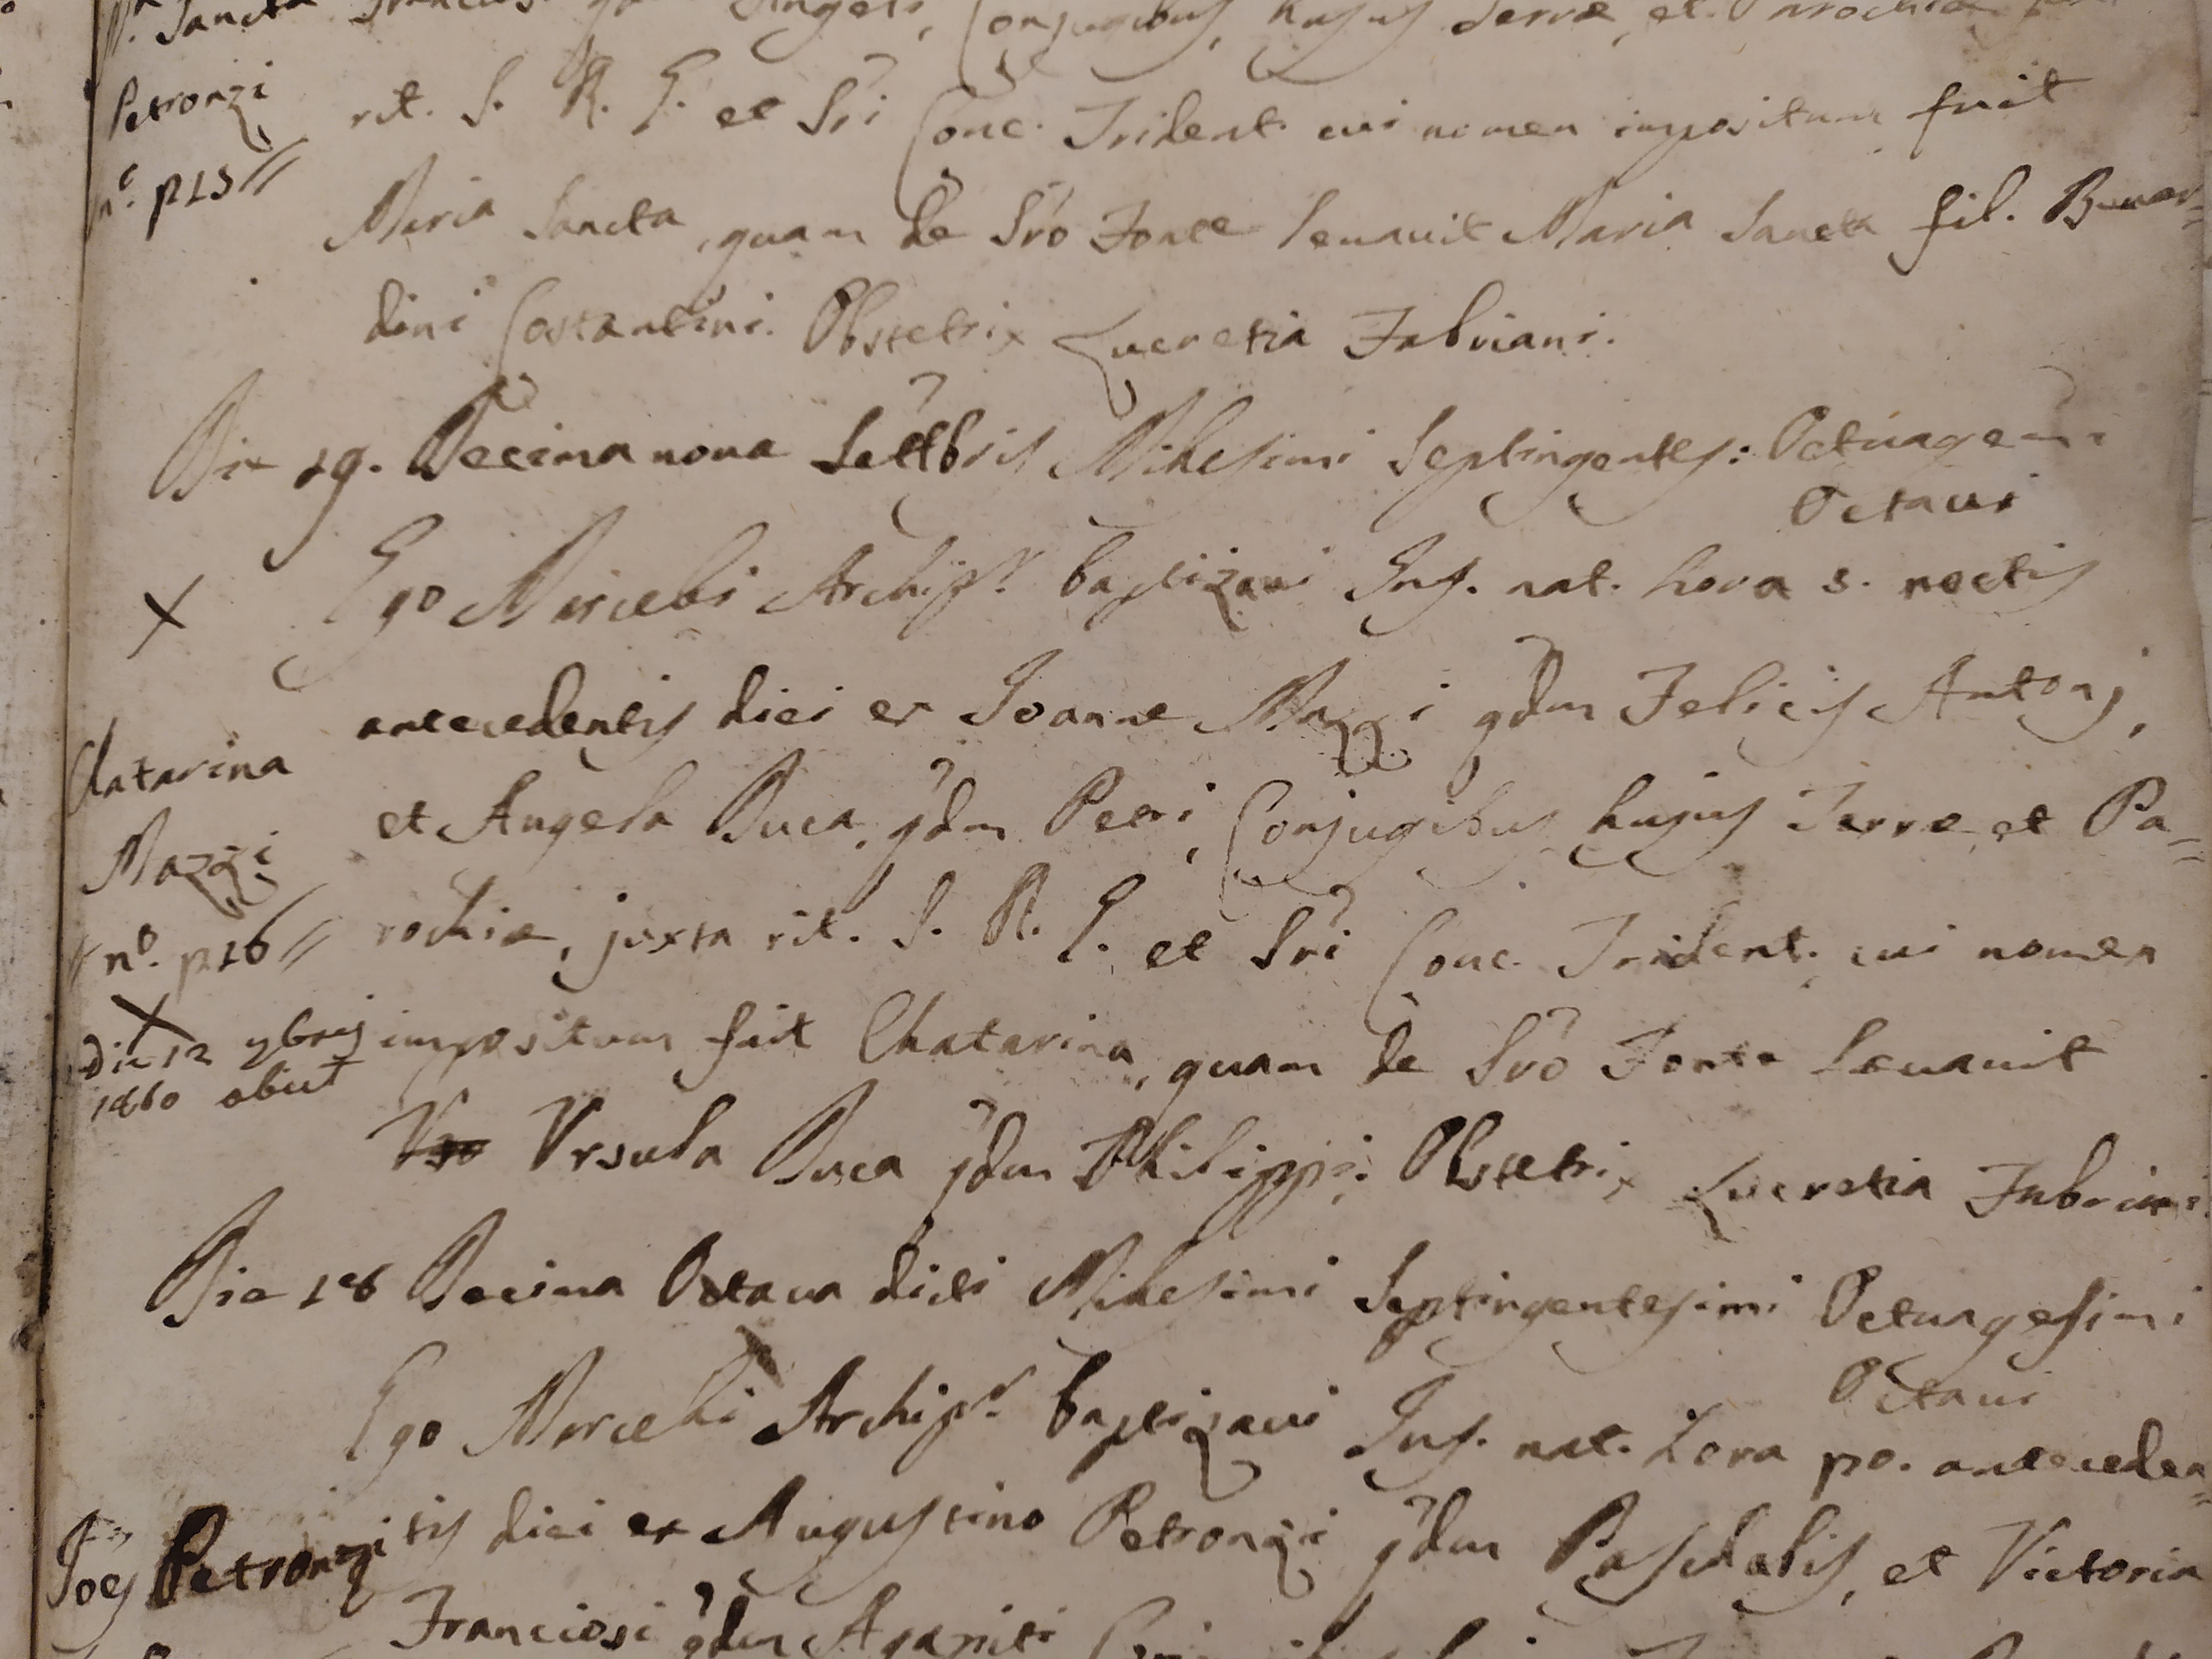 Sancta Francisc. Angeli, Conjugibus, hujus Terræ, et Parochiæ
Petronzi
rit. S. R. E. et Sri Conc. Trident. cui nomen impositum fuit
n.º p15//
Maria Sancta, quam de Sro Fonte levavit Maria Sancta fil. Bernar=
dini Costantini. Obstetrix Lucretia Fabriani.
Die 19. Decima nona Settbris Millesimi Septingentes: Octuagesimi
Octavi
X Ego Marcelli Archipr. baptizavi Inf. nat. hora 5. noctis
antecedentis diei ex Joanne Mazzi qdm Felicis Antonj,
Chatarina
et Angela Duca qdm Petri, Conjugibus hujus Terræ, et Pa=
Mazzi
rochiæ, juxta rit. S. R. E. et Sri Conc. Trident. cui nomen
// nº. p16 //
X
impositum fuit Chatarina, quam de Sro Fonte levavit
Die 12 9bris
1860 obiit
Ursula Duca qdm Philippi. Obstetrix Lucretia Fabriani
Die 18 Decima Octava dicti Millesimi Septingentesimi Octuagesimi
Octavi
Ego Marcelli Archipr. baptizavi Inf. nat. hora po. anteceden=
Joes Petronzi
tis diei ex Augustino Petronzi qdm Paschalis, et Victoria
Franciosi qdm Agapiti